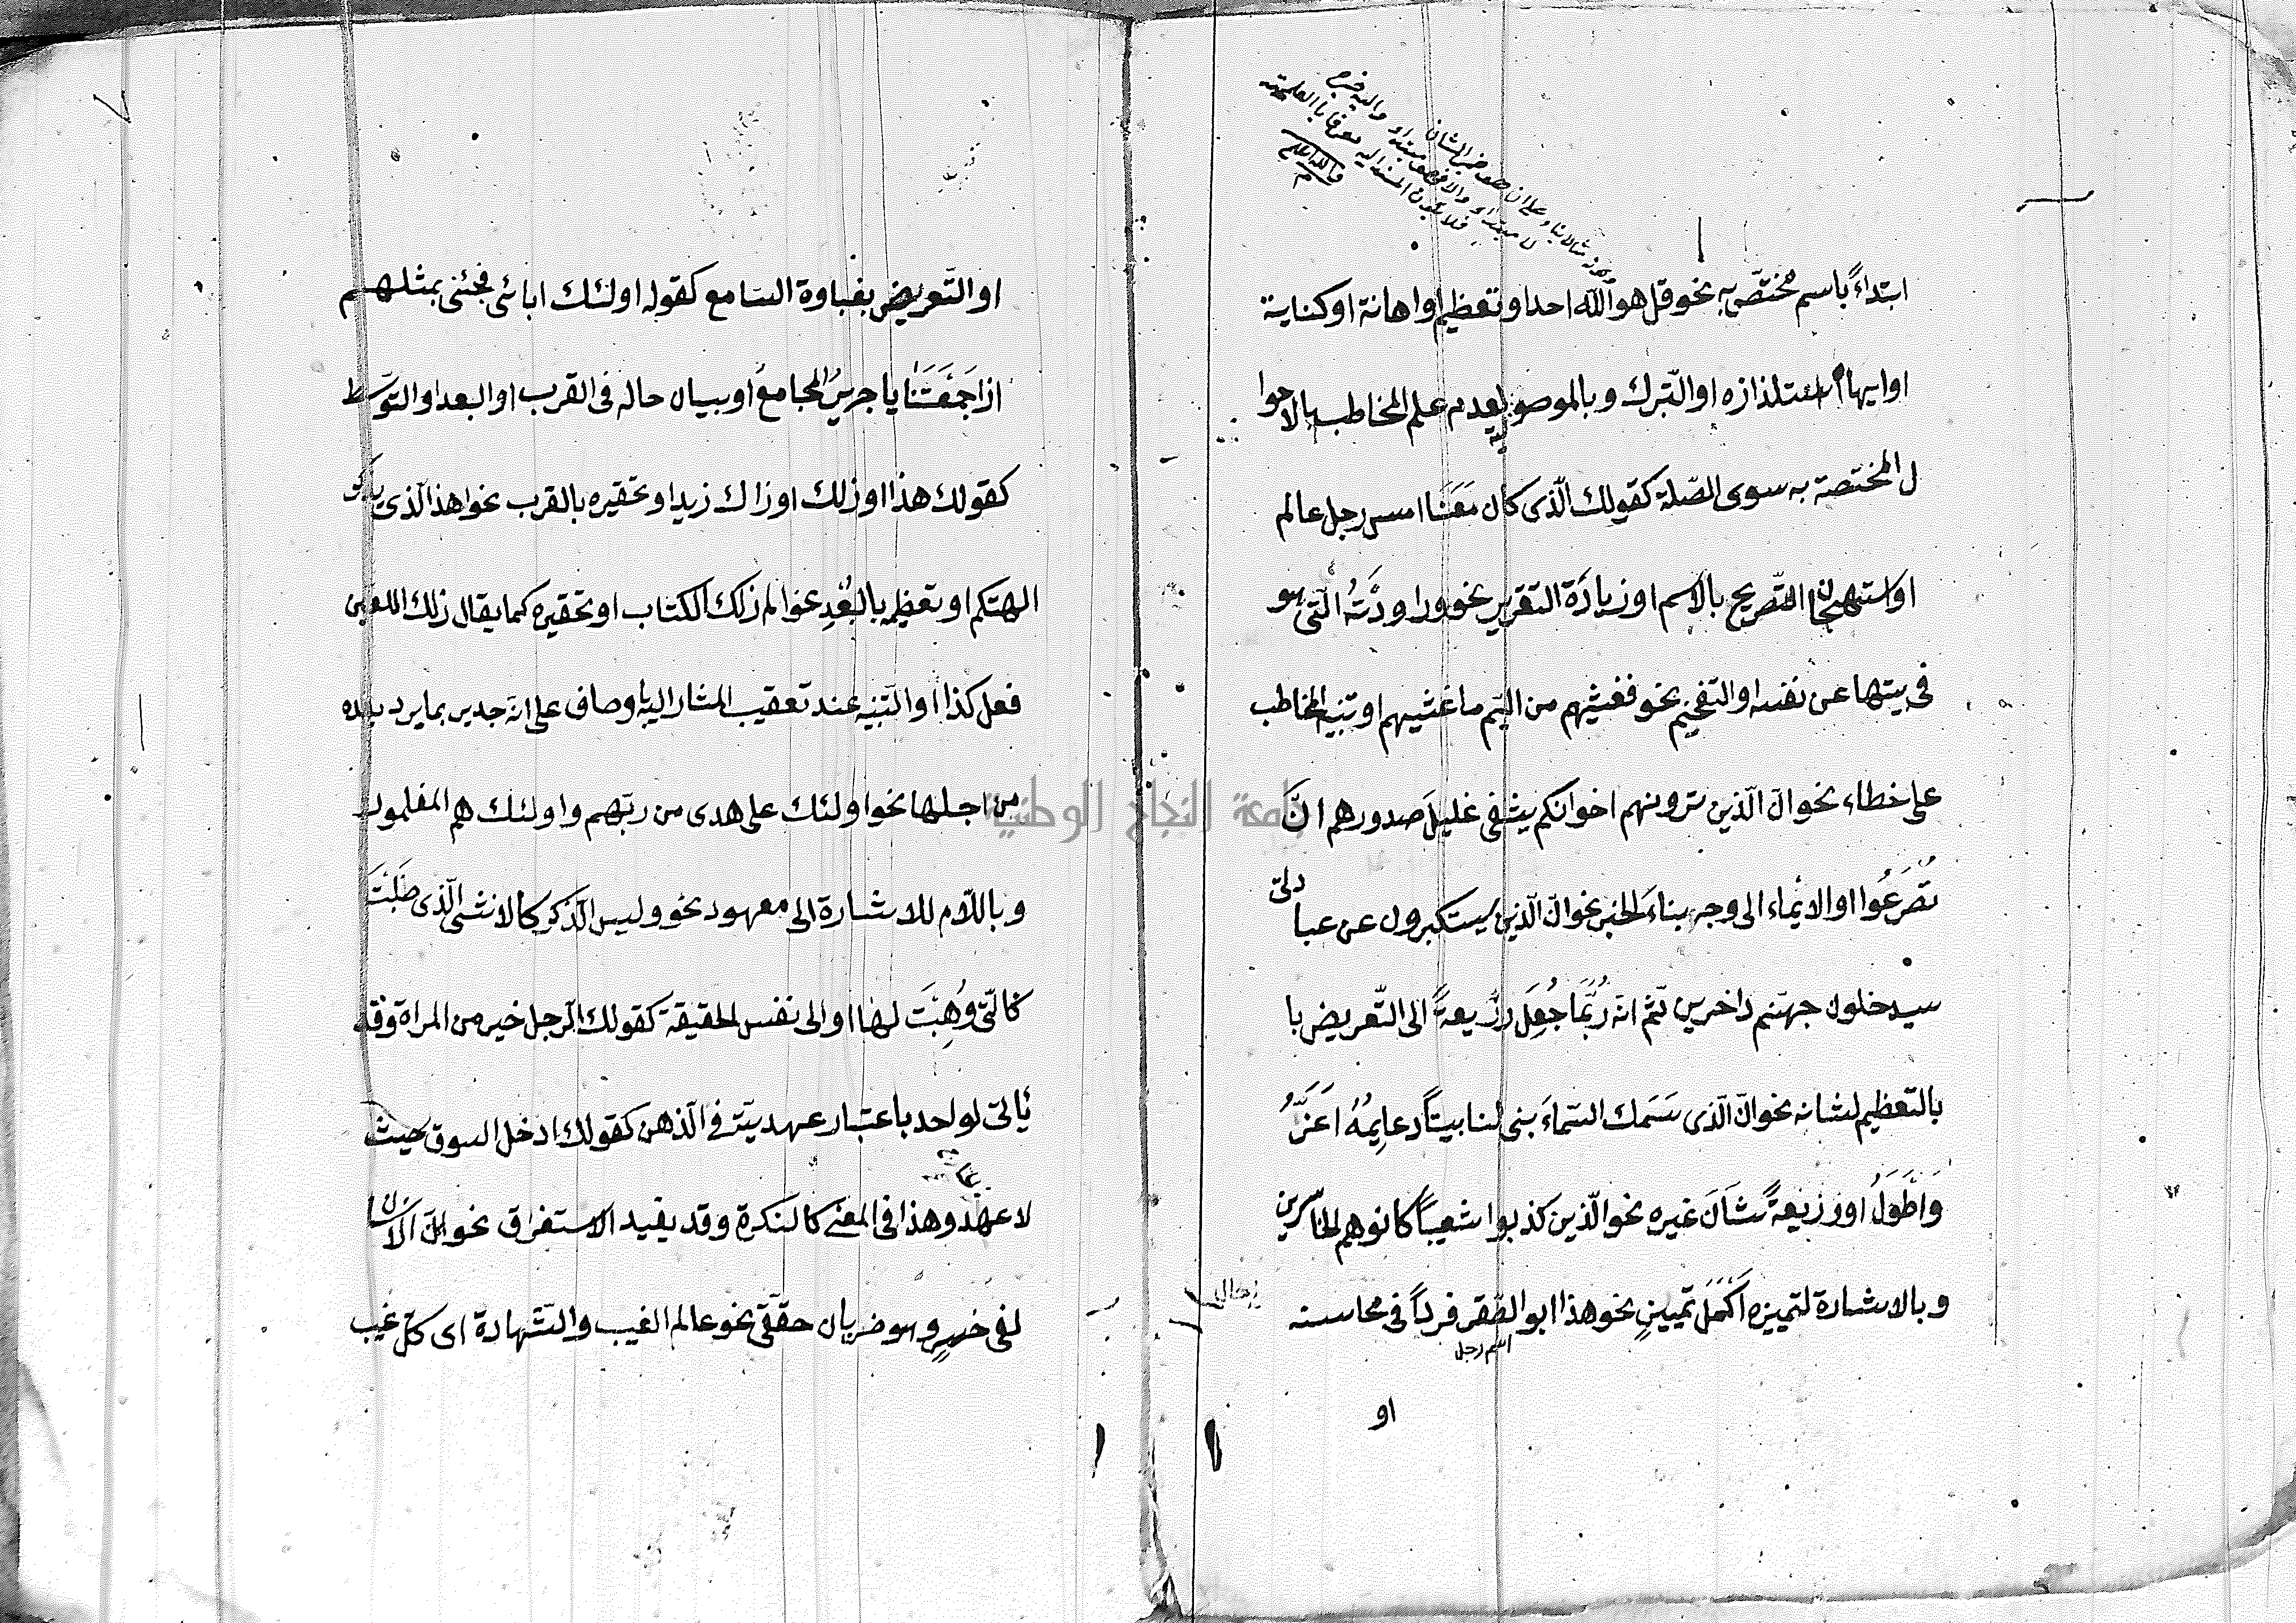 ابتداءً باسم مختصّ به نحو قل هو الله احد او تعظيم او اهانة او كناية
او ايهام استلذاذه او التّبرك وبالموصولية لعدم علم المخاطب بالاحوا
ل المختصة به سوى الصّلة كقولك الّذى كان مَعَنَا امس رجل عالم
او استهجان التّصريح بالاسم او زيادَة التقرير نحو وراودَتْهُ الّتى هو
فى بيتها عن نفسه او التفخيم نحو فغشيهم من اليّم ما غشيهم او تنبيه المخاطب
على خطاء نحو انّ الّذين ترونهم اخوانكم يشفى غليلَ صدورهم انْ
تُصْرَعُوا او الايْماء الى وجه بناءَ الخبر نحو انّ الّذين يستكبرون عن عبا دتى
سيدخلون جهنّم داخرين ثّم انّه رُبَّمَا جُعِلَ ذريعةً الى التّعريض با
بالتعظيم لشانه نحو انّ الّذى سَمَك السّماءَ بنى لنا بيتاً دعايِمُهُ اَعَزُّ
وَاَطْوَلُ او ذريعةً شَاَنَ غيره نحو الّذين كذبوا شعيباً كانو هم الخاسرين
وبالاشارة لتميزه اَكْمَلَ تمييزٍ نحو هذا ابو الصّقر فرداً فى محاسنه
اسم رجل
او
والله اعلم
او التّعريض بغباوة السّامع كقوله اولئك ابائى فجئنى بمثلهم
اذا جَمَعَتْنَا يا جريرُ المجامعُ او بيان حاله فى القرب او البعد او التوسّط
كقولك هذا او ذلك او ذاك زيد او تحقيره بالقرب نحو اهذا الّذى يذكر
الهتكم او تعظيمه بالبُعْدِ نحو الم ذلك الكتاب او تحقيره كما يقال ذلك اللعين
فعل كذا او التّنبيه عند تعقيب المشار اليه باوصاف على انّه جدير بما يرد بعده
من اجلها نحو اولئك على هدى من ربّهم واولئك هم المفلحون
وباللّام للاشارة الى معهود نحو وليس الذّكر كالانثى الّذى طَلَبَتْ
كالّتى وُهِبَتْ لها او الى نفس الحقيقة كقولك الرّجل خير من المراة وقد
يأتى لواحد باعتبار عهديته فى الّذهن كقولك ادخل السوق حيث
لا عهد وهذا فى المعنى كالنكرة وقد يفيد الاستغراق نحو انّ الانسان
لفى خسرٍ وهو ضربان حقّقى نحو عالم الغيب والشّهادة اى كلّ غيب
جامعة النجاح الوطنية